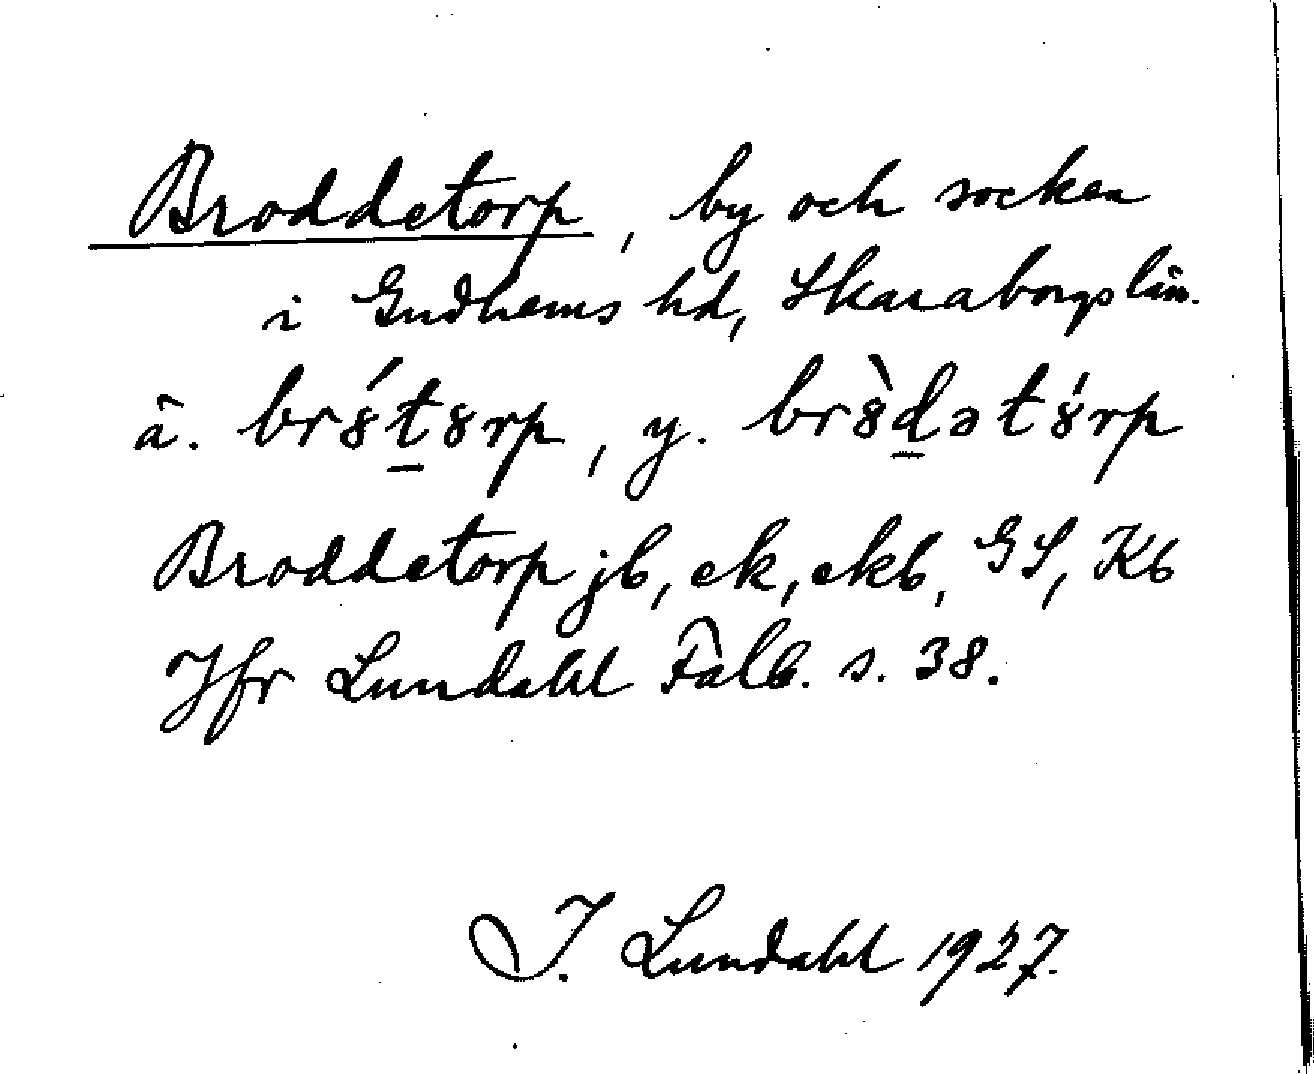 Broddetorp, by och socken
i Gudhems hd, Skaraborgs län.
ä. br8́t̠8rp, y. br8̀d̠ət8́rp
Broddetorp jb, ek, ekb, GS, Kb
Jfr Lundahl Falb. s. 38.
I. Lundahl 1927.